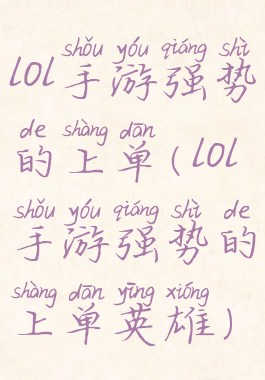 shǒu yóu qiáng shì
lol手游强势
de shàng dān
的上单(lol
shǒu yóu qiáng shì de
手游强势的
shàng dān yīng xióng
上单英雄)